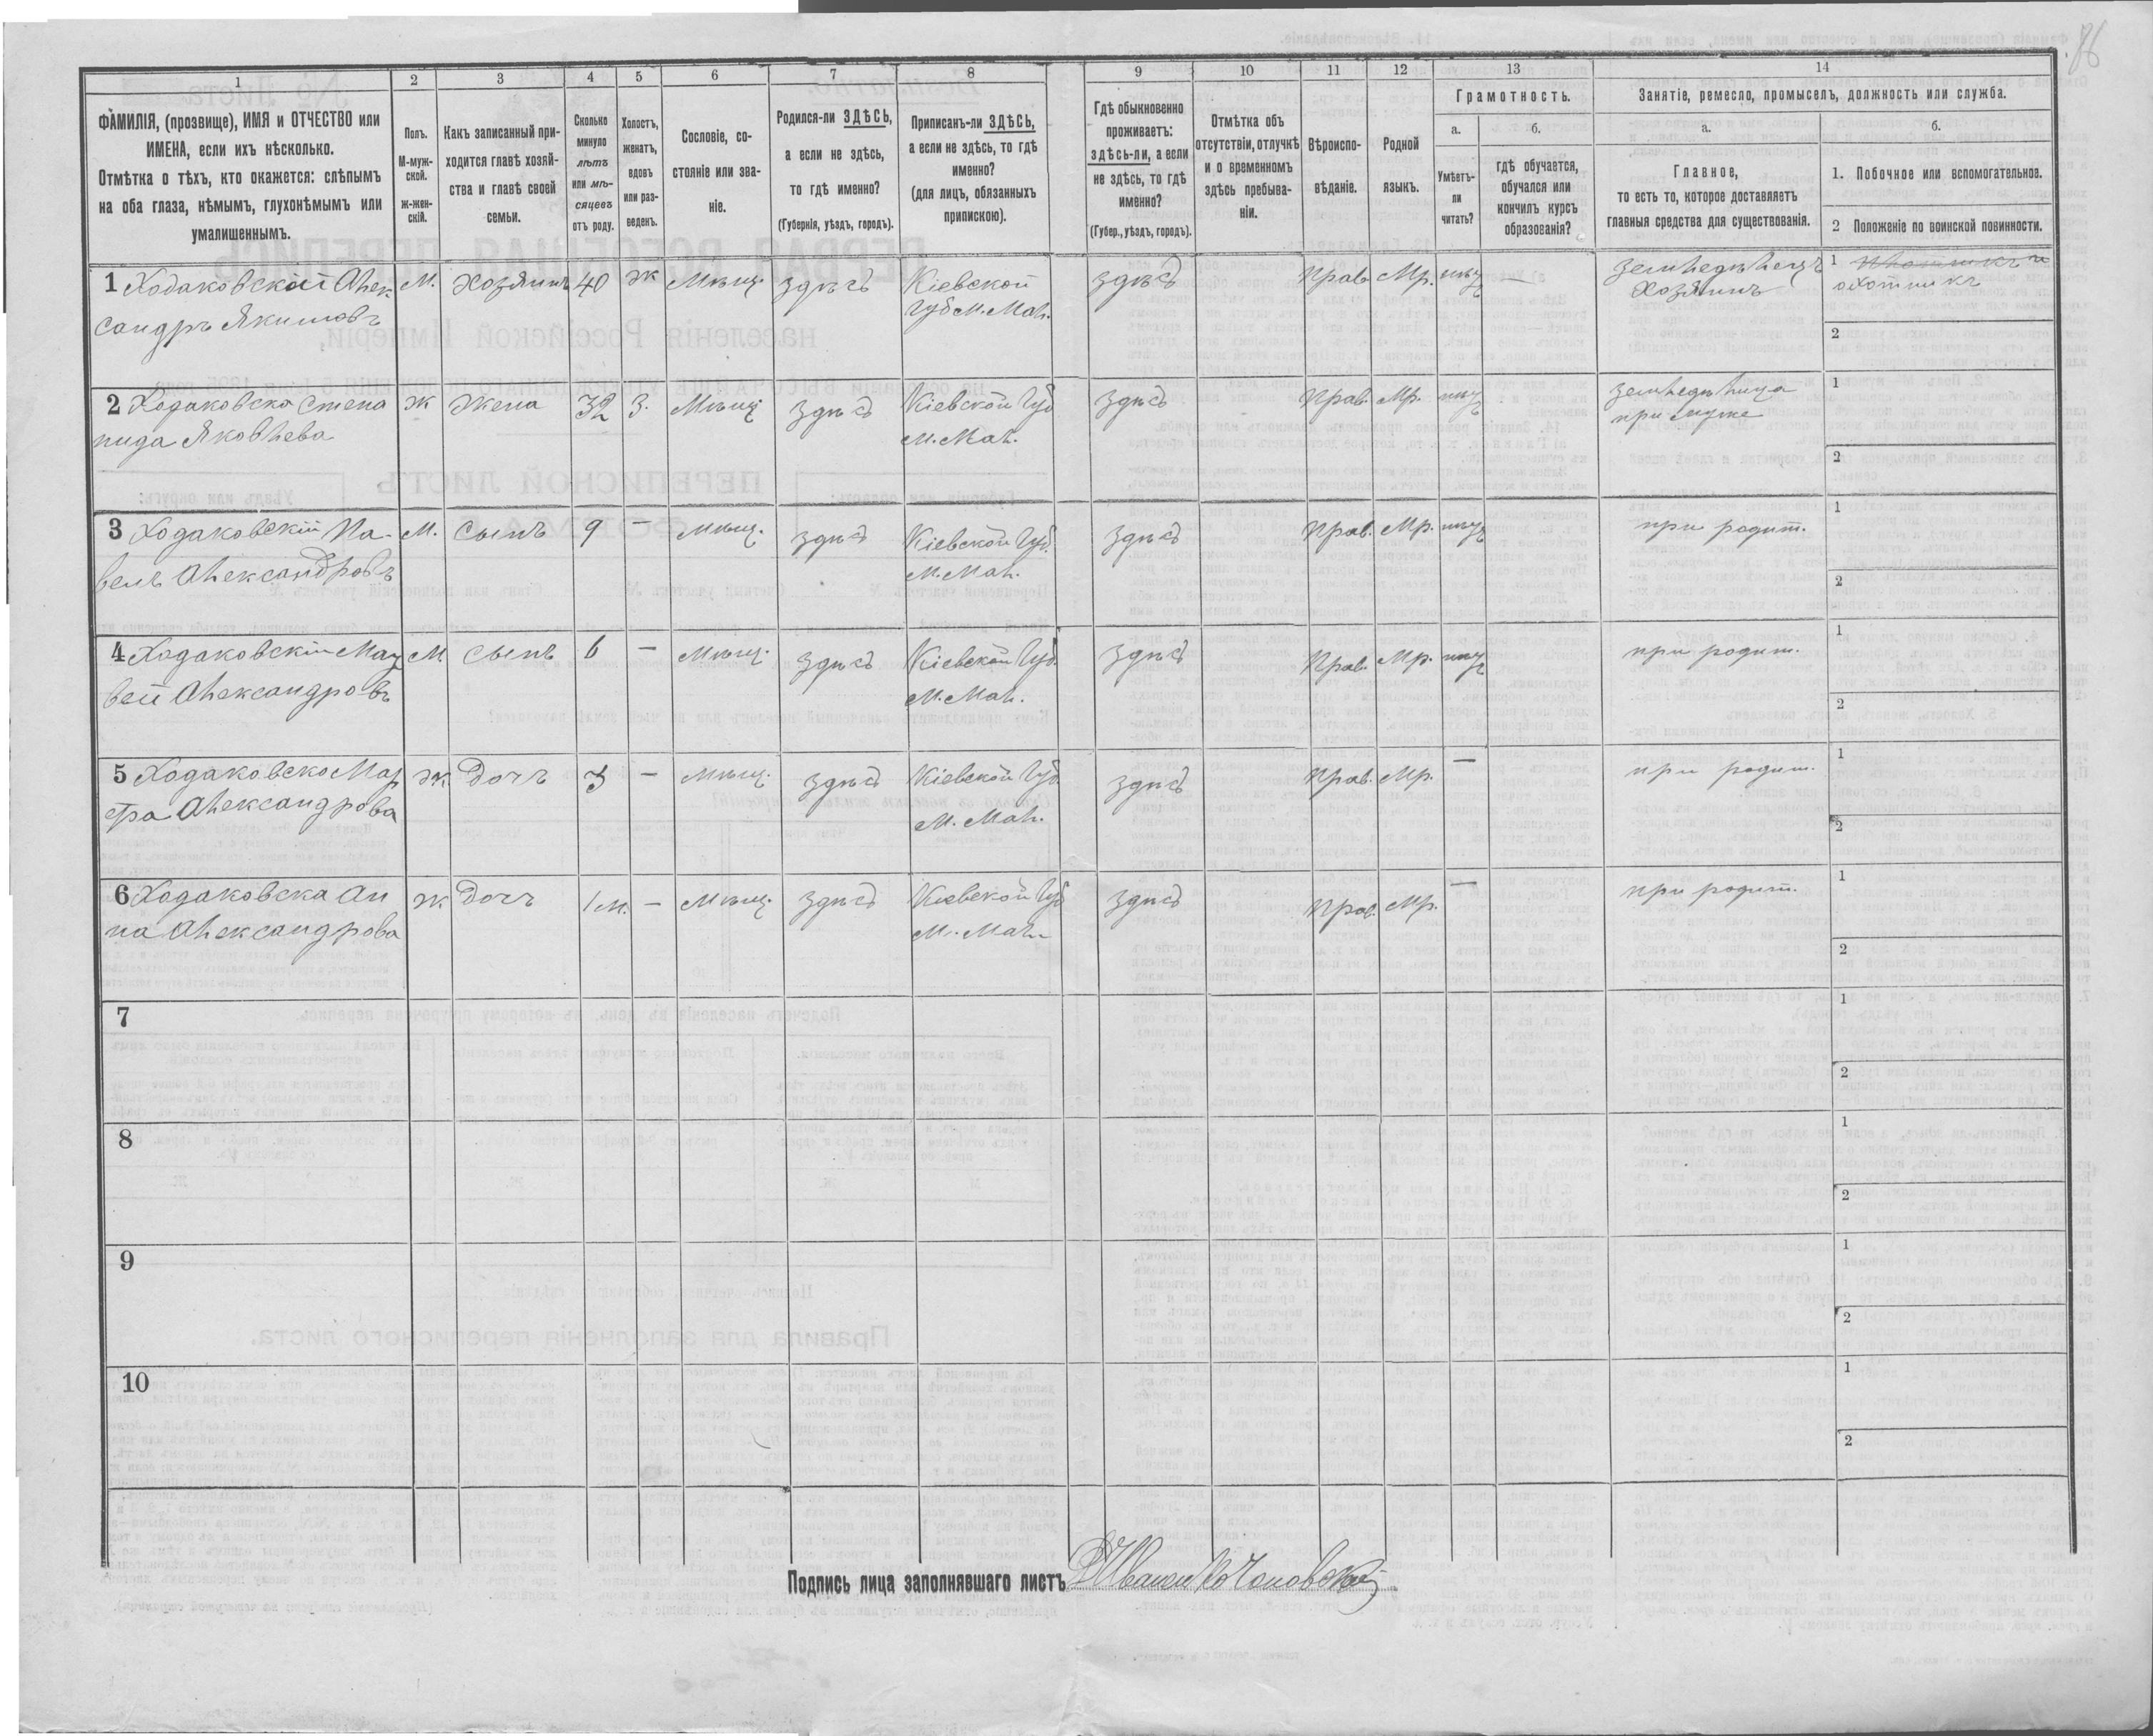 76
1
2
3
4
5
6
7
8
9
10
11
12
13
14
ФАМИЛІЯ, (прозвище), ИМЯ и ОТЧЕСТВО или
ИМЕНА, если ихъ нѣсколько.
Отмѣтка о тѣхъ, кто окажется: слѣпымъ
на оба глаза, нѣмымъ, глухонѣмымъ или
умалишеннымъ.
Полъ.
М-муж-
ской.
ж-жен-
скій.
Какъ записанный при-
ходится главѣ хозяй-
ства и главѣ своей
семьи.
Сколько
минуло
лѣтъ
или мѣ-
сяцевъ
отъ роду.
Холостъ,
женатъ,
вдовъ
или раз-
веденъ.
Сословіе, со-
стояніе или зва-
ніе.
Родился-ли ЗДѢСЬ,
а если не здѣсь,
то гдѣ именно?
(Губернія, уѣздъ, городъ).
Приписанъ-ли ЗДѢСЬ,
а если не здѣсь, то гдѣ
именно?
(для лицъ, обязанныхъ
припискою).
Гдѣ обыкновенно
проживаетъ:
здѣсь-ли, а если
не здѣсь, то гдѣ
именно?
(Губер., уѣздъ, городъ).
Отмѣтка объ
отсутствіи, отлучкѣ
и о временномъ
здѣсь пребыва-
ніи.
Вѣроиспо-
вѣданіе.
Родной
языкъ.
Грамотность.
а.
Умѣетъ-
ли
читать?
б.
гдѣ обучается,
обучался или
кончилъ курсъ
образованія?
Занятіе, ремесло, промыселъ, должность или служба.
а.
Главное,
то есть то, которое доставляетъ
главныя средства для существованія.
б.
1. Побочное или вспомогательное.
2 Положеніе по воинской повинности.
1 Ходаковскій Алек
сандръ Якимовъ
М.
Хозяинъ
40
ж
Мѣщ.
здѣсь
Кіевской
Губ М. Мак.
здѣсь
Прав.
Мр.
нѣтъ
—
земледѣлецъ
хозяинъ
1
охотникъ
2
2 Ходаковска Степа
нида Яковлева
Ж
Жена
32
З.
Мѣщ.
здѣсь
Кіевской Губ
М. Мак.
здѣсь
Прав.
Мр.
нѣтъ
земледѣлица
при муже
1
2
3 Ходаковскій Па-
велъ Александровъ
М.
Сынъ
9
—
Мѣщ.
здѣсь
Кіевской Губ.
М. Мак.
здѣсь
Прав.
Мр.
нѣтъ
при родит.
1
2
4 Ходаковскій Мат
вей Александровъ
М
Сынъ
6
—
Мѣщ.
здѣсь
Кіевской Губ.
М. Мак.
здѣсь
Прав.
Мр.
нѣтъ
при родит.
1
2
5 Ходаковско Мар
фа Александрова
Ж
Дочь
3
—
Мѣщ.
здѣсь
Кіевской Губ.
М. Мак.
здѣсь
Прав.
Мр.
—
при родит.
1
2
6 Ходаковска Ан
на Александрова
Ж
Дочь
1 м.
—
Мѣщ.
здѣсь
Кіевской Губ
М. Мак.
здѣсь
Прав.
Мр.
—
при родит.
1
2
7
1
2
8
1
2
9
1
2
10
1
2
Подпись лица заполнявшаго листъ